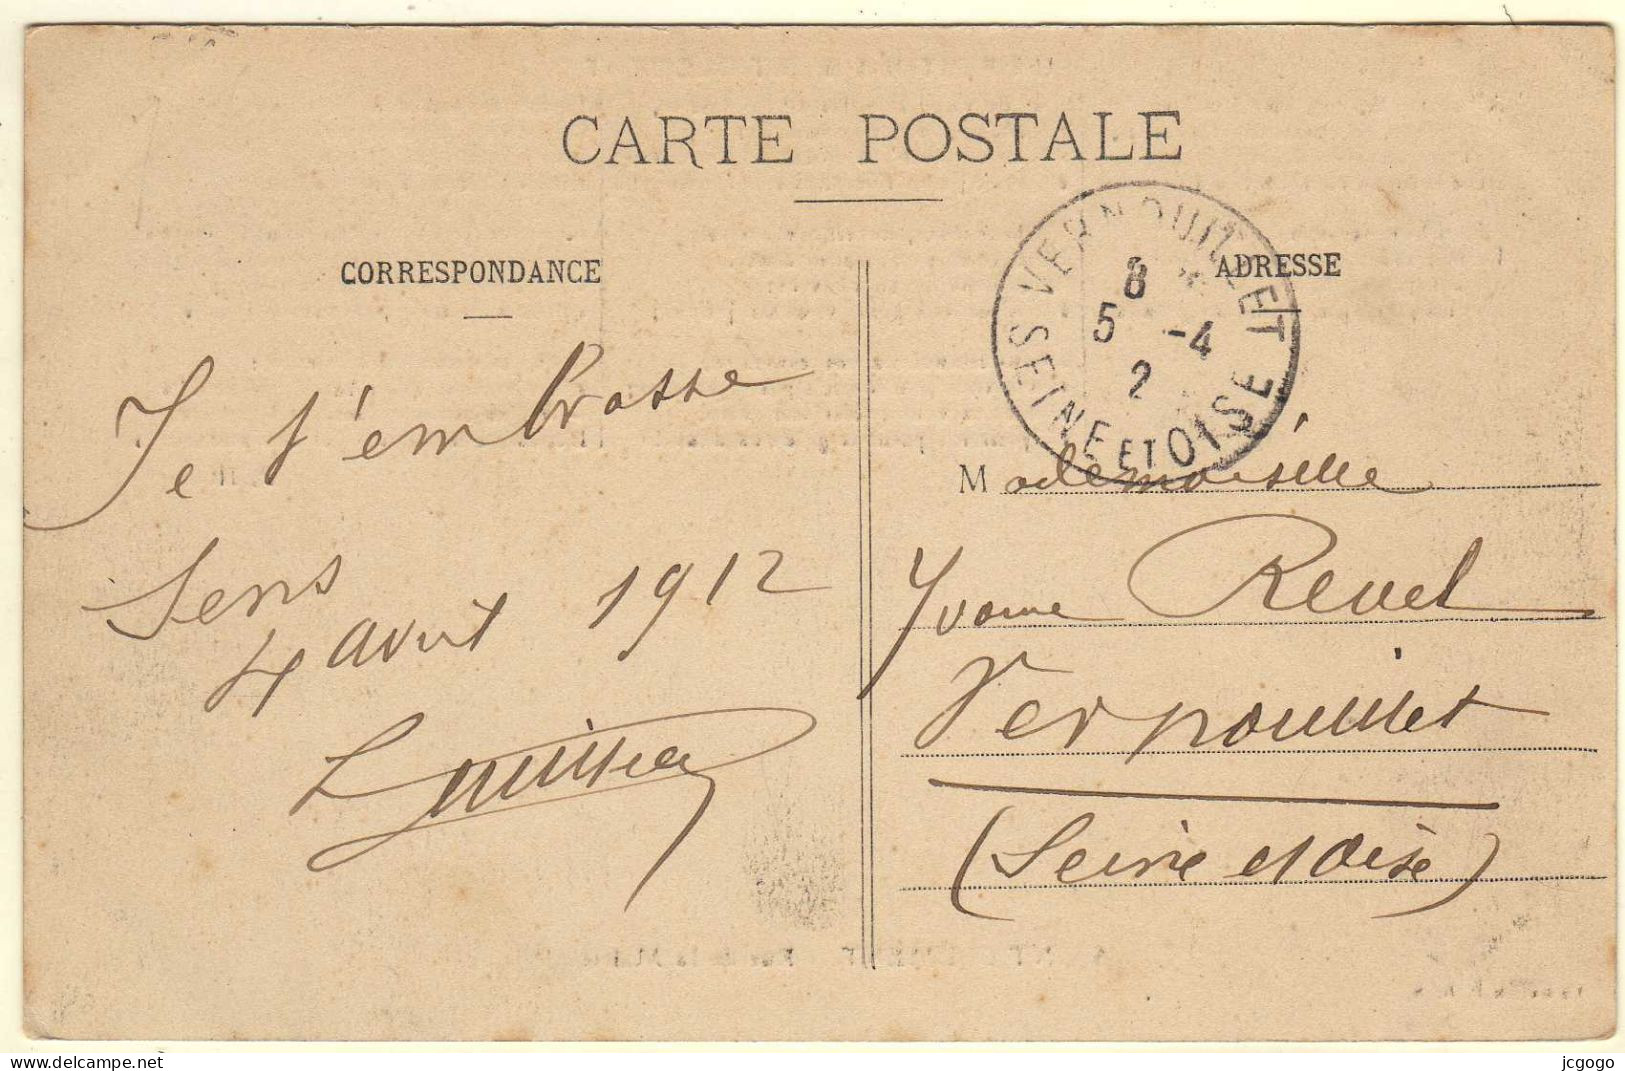 CARTE POSTALE
CORRESPONDANCE
Je t'embrasse
Sens
4 avril 1912
ADRESSE
VERNOUILLET
8
5 -4
2
SEINE ET OISE
Mademoiselle
Yvonne Revel
Vernouillet
(Seine et Oise)
www.delcampe.net
jcgogo